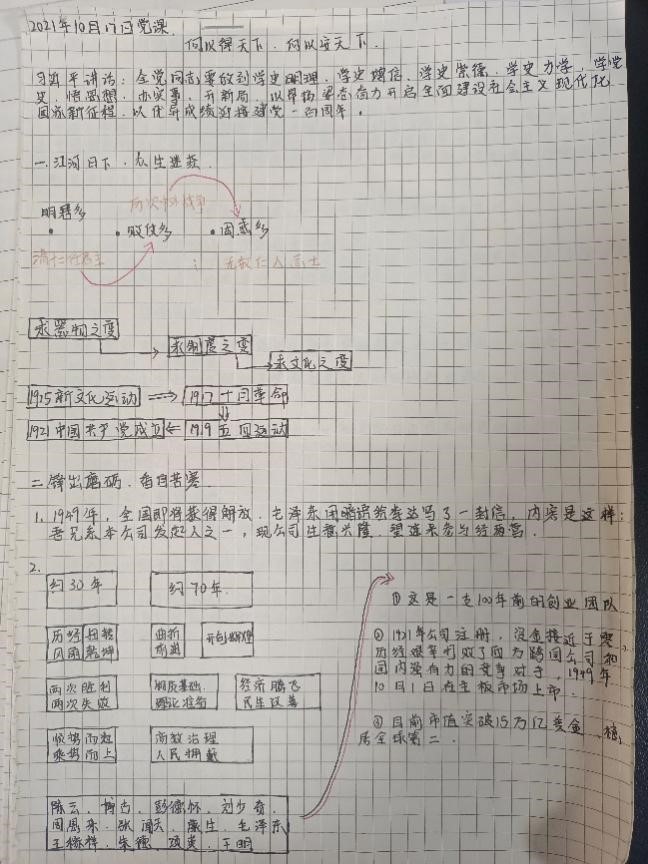 2021年10月17日党课.
何以得天下.何以安天下.
习近平讲话:全党同志要做到学史明理.学史增信.学史崇德.学史力行.学党
史.悟思想.办实事.开新局.以昂扬姿态奋力开启全面建设社会主义现代化
国家新征程.以优异成绩迎接建党一百周年.
一.江河日下.众生迷茫.
明君多
败仗多
困惑多
无数仁人志士
求器物之变
求制度之变
求文化之变
1915新文化运动
1917十月革命
1921中国共产党成立
1919五四运动
二.锋出磨砺.香自苦寒
1.1949年,全国即将获得解放.毛泽东用暗语给李达写了一封信,内容是这样:
吾兄系本公司发起人之一,现公司生意兴隆.望速来参与经营.
2.
约30年
约70年
历经 扭转
风雨 乾坤
曲折
前进
两次胜利
两次失败
物质基础
理论准备
经济腾飞
民生改善
乘势而上
高效治理
人民拥戴
陈云.博古.彭德怀.刘少奇.
周恩来.张闻天.康生.毛泽东
王稼祥.朱德.项英.王明
①这是一支100年前的创业团队
②1921年公司注册,资金接近于零
历经艰辛打败了因为跨国公司和
国内强有力的竞争对手,1949年
10月1日在主板市场上市.
③目前市值突破15万亿美金.稳
居全球第二.